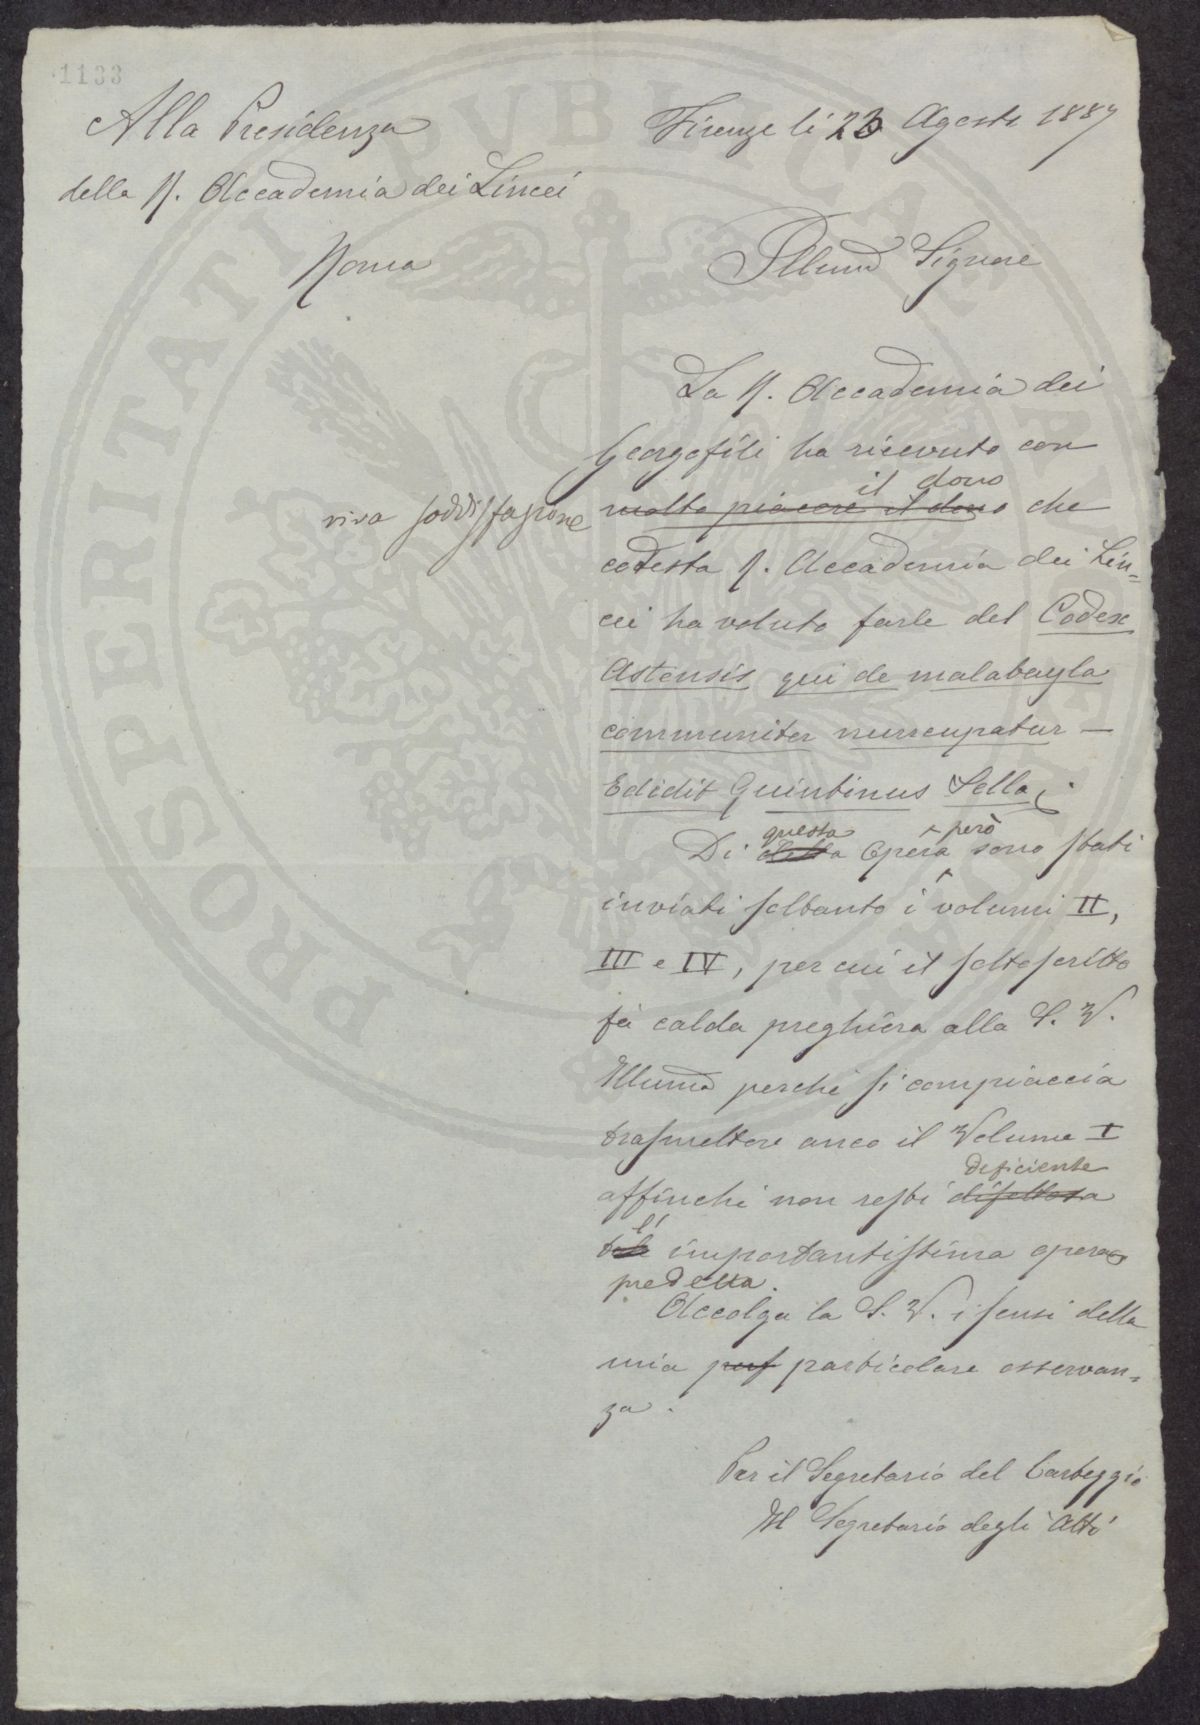 1133
Alla Presidenza
della R. Accademia dei Lincei
Roma
Firenze li 23 Agosto 1887
Illmo Signore
La R. Accademia dei
Georgofili ha ricevuto con
viva soddisfazione il dono
molto piacere il dono che
codesta R. Accademia dei Lin=
cei ha voluto farle del Codex
Astensis qui de malabayla
communiter nuncupatur —
Edidit Quintinus Sella;
questa però
Di detta Opera sono stati
inviati soltanto i volumi II,
III e IV, per cui il sottoscritto
fà calda preghiera alla S. V.
Illuma perchè si compiaccia
trasmettere anco il Volume I
deficiente
affinchè non resti difettosa
l'
tale importantissima opera
predetta.
Accolga la S. V. i sensi della
mia perf particolare osservan=
za.
Per il Segretario del Carteggio
Il Segretario degli Atti
PROSPERITATI PVBLICAE